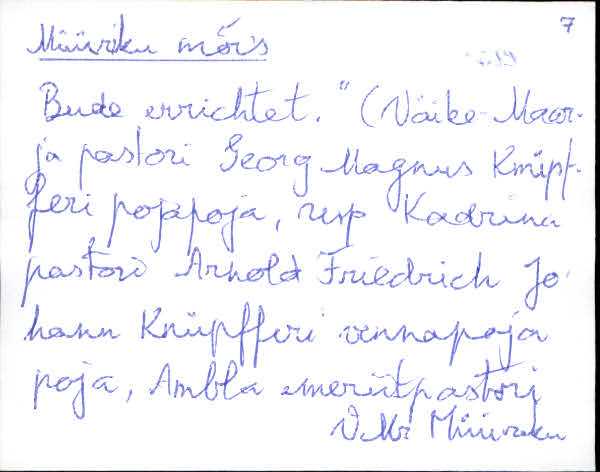 7
Müüriku mõis
Bude errichtet." (Väike-Maar-
ja pastori Georg Magnus Knüpf-
feri pojapoja, resp Kadrina
pastori Arnold Friedrich Jo
hann Knüpfferi vennapoja
poja, Ambla emeriitpastori
VMr Müüriku